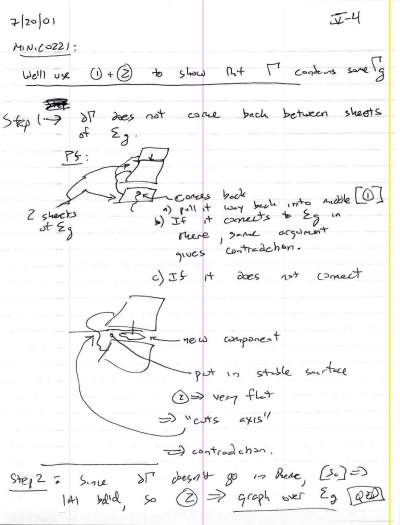 7/20/01
V-4
MINICOZZI:
We'll use ① + ② to show that Γ contains some Γg
Step 1 → ∂Γ does not come back between sheets
of Σg.
Pf:
2 sheets
of Σg
comes back
a) pull it way back into middle [①]
b) If it connects to Σg in
there, same argument
gives contradction.
c) If it does not connect
new component
put in stable surface
② ⇒ very flat
⇒ "cuts axis"
⇒ contradction.
Step 2: Since ∂Γ doesn't go in there, ⇒
|A| bdd, so ② ⇒ graph over Σg QED